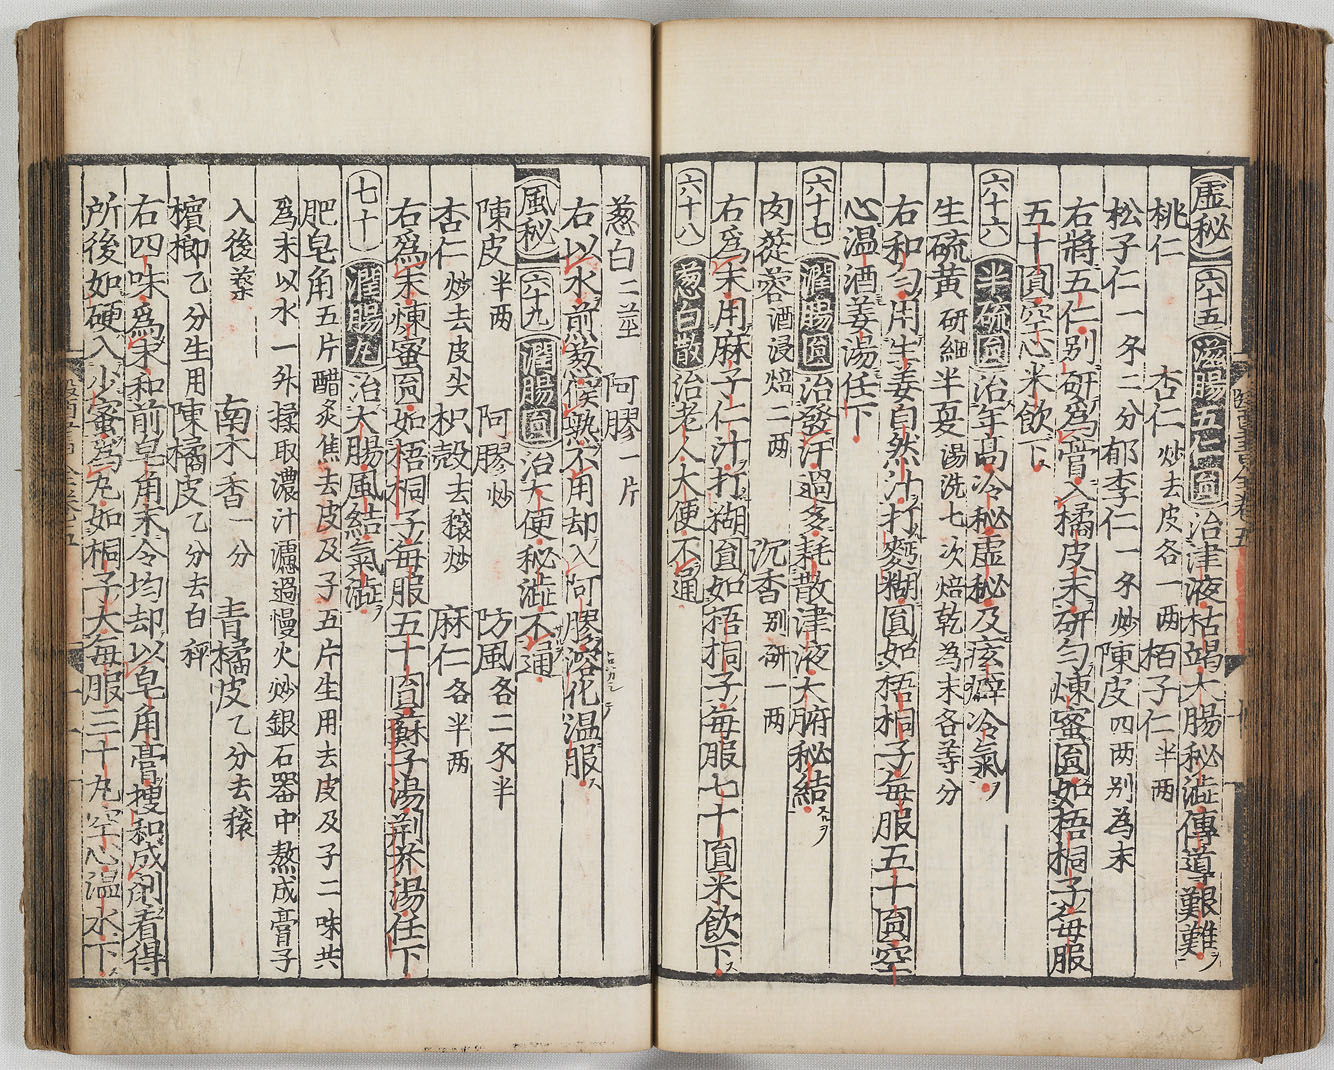 虚秘 六十五 滋腸五仁圓 治津液枯竭大腸秘澁傳導艱難
桃仁 杏仁炒去皮各一两 栢子仁半两
松子仁一錢二分 郁李仁一錢炒 陳皮四两別為末
右將五仁別研爲膏入橘皮末研勻煉蜜圓如梧桐子每服
五十圓空心米飲下
六十六 半硫圓 治年高冷秘虚秘及痃癖冷氣
生硫黄研細 半夏湯洗七次焙乾為末各等分
右和勻用生姜自然汁打麪糊圓如梧桐子每服五十圓空
心温酒姜湯任下
六十七 潤腸圓 治發汗過多耗散津液大腑秘結
肉蓯蓉酒浸焙二两 沉香別研一两
右爲末用麻子仁汁打糊圓如梧桐子每服七十圓米飲下
六十八 葱白散 治老人大便不通
葱白二莖 阿膠一片
右以水煎葱候熟不用却入阿膠溶化温服
風秘 六十九 潤腸圓 治大便秘澁不通
陳皮半两 阿膠炒 防風各二錢半
杏仁炒去皮尖 枳殻去穣炒 麻仁各半两
右爲末煉蜜圓如梧桐子每服五十圓蘇子湯荆芥湯任下
七十 潤腸丸 治大腸風結氣澁
肥皂角五片醋炙焦去皮及子五片生用去皮及子二味共
爲末以水一升揉取濃汁濾過慢火炒銀石器中熬成膏子
入後藥 南木香一分 青橘皮乙分去穣
檳榔乙分生用 陳橘皮乙分去白秤
右四味爲末和前皂角末令均却以皂角膏搜和成剤看得
所後如硬入少蜜爲丸如桐子大每服三十丸空心温水下